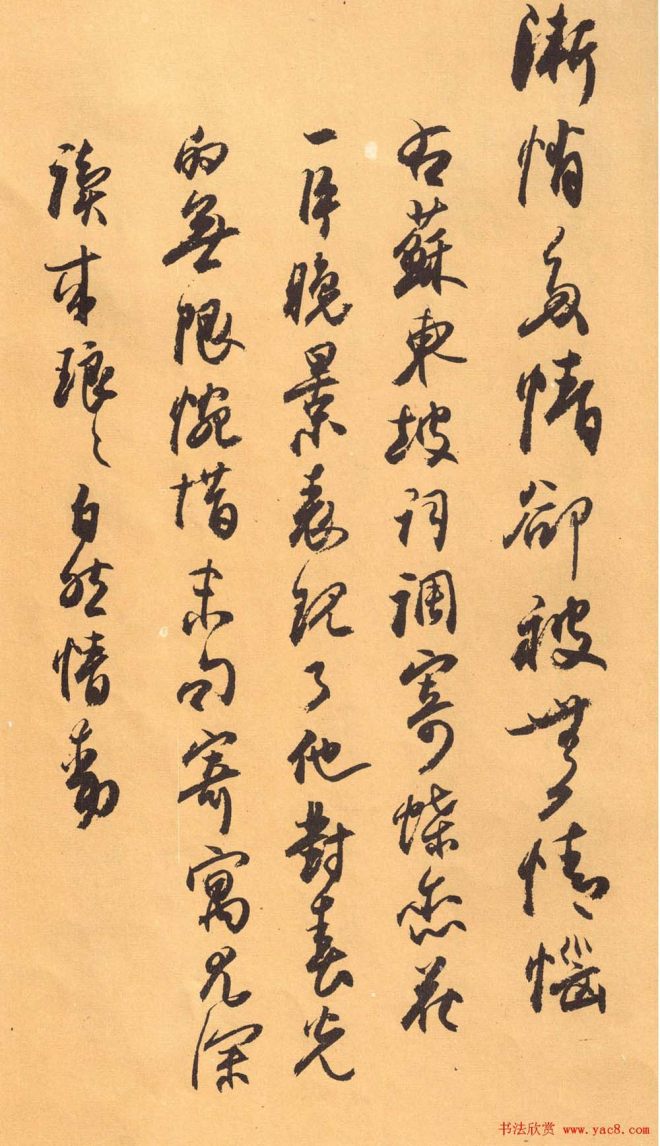 漸悄多情卻被無情惱
右蘇東坡詞調寄蝶戀花
一片晚景表現了他對春光
的無限惋惜末句寄寓尤深
讀來琅々自然情動
书法欣赏 www.yac8.com